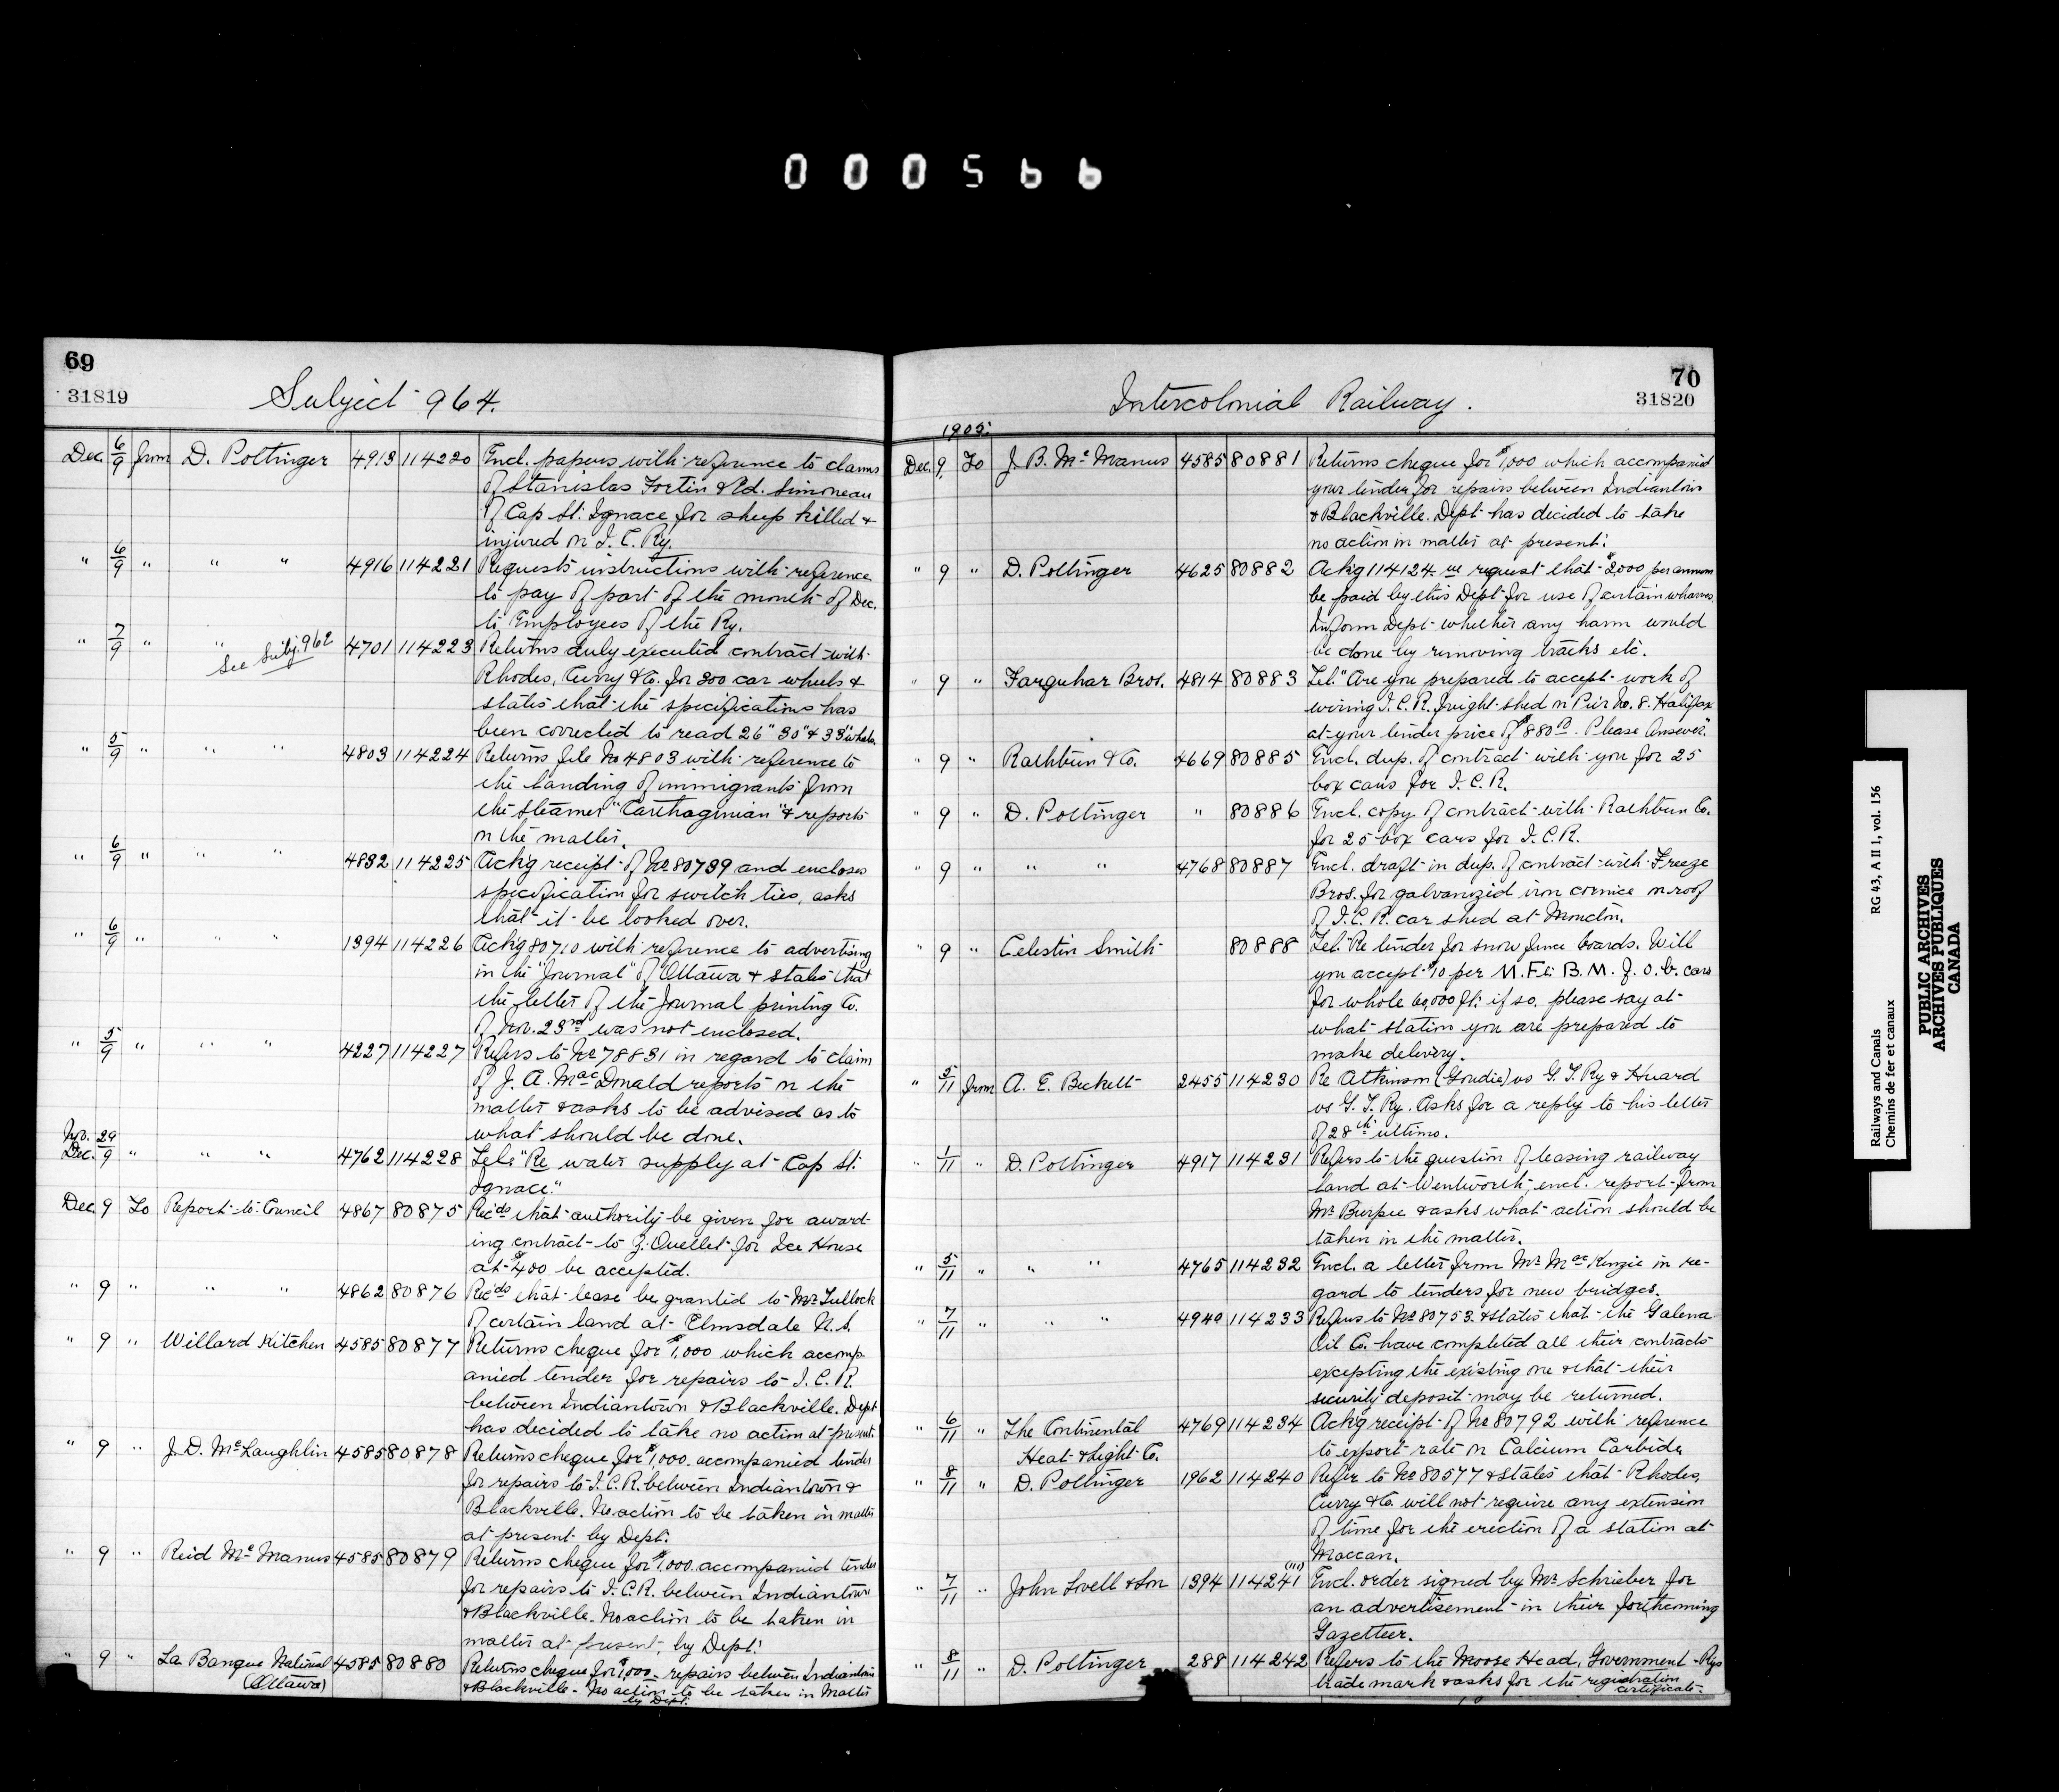 000566
69
31819
Subject 964.
Dec. 6/9 from D. Pottinger 4913 114220 Encl. papers with reference to claims
of Stanislas Fortin & Ed. Simoneau
of Cap St. Ignace for sheep killed &
injured on I. C. Ry.
" 6/9 " " " 4916 114221 Requests instructions with reference
to pay of part of the month of Dec.
to Employees of the Ry.
" 7/9 " " 4701 114223 Returns duly executed contract with
See Subj. 962
Rhodes, Curry & Co. for 200 car wheels &
states that the specifications has
been corrected to read 26" 30" & 33" wheels.
" 5/9 " " " 4803 114224 Returns file No 4803 with reference to
the landing of immigrants from
the steamer "Carthaginian" & reports
on the matter.
" 6/9 " " " 4832 114225 Ackg receipt of No 80739 and encloses
specification for switch ties, asks
that it be looked over.
" 6/9 " " " 1394 114226 Ackg 80710 with reference to advertising
in the "Journal" of Ottawa & states that
the letter of the Journal printing Co.
of Nov. 23rd was not enclosed.
" 5/9 " " " 4227 114227 Refers to No 78831 in regard to claim
of J. A. MacDonald reports on the
matter & asks to be advised as to
what should be done.
Nov. 29
Dec. 9 " " " 4762 114228 Tel: "Re water supply at Cap St.
Ignace."
Dec. 9 To Report to Council 4867 80875 Recds that authority be given for award-
ing contract to Z. Ouellet for Ice House
at $400 be accepted.
" 9 " " " 4862 80876 Recds that lease be granted to Mr Tullock
of certain land at Elmsdale N.S.
" 9 Willard Kitchen 4585 80877 Returns cheque for $1,000 which accomp-
anied tender for repairs to I. C. R.
between Indiantown & Blackville. Dept
has decided to take no action at present.
" 9 " J. D. McLaughlin 4585 80878 Returns cheque for $1,000. accompanied tender
for repairs to I. C. R. between Indiantown &
Blackville. No action to be taken in matter
at present by Dept.
" 9 " Reid McManus 4585 80879 Returns cheque for $1,000. accompanied tender
for repairs to I. C. R. between Indiantown
& Blackville. No action to be taken in
matter at present, by Dept.
" 9 " La Banque National 4585 80880 Returns cheque for $1,000 - repairs between Indiantown
(Ottawa)
& Blackville - No action to be taken in Matter
by Dept.
70
31820
Intercolonial Railway.
1905.
Dec. 9. To J. B. McManus 4585 80881 Returns cheque for $1,000 which accompanied
your tender for repairs between Indiantown
& Blackville. Dept has decided to take
no action in matter at present.
" 9 " D. Pottinger 4625 80882 Ackg 114124 re request that $2,000 per annum
be paid by this Dept for use of certain wharves.
Inform Dept whether any harm would
be done by removing tracks etc.
" 9 " Farquhar Bros. 4814 80883 Tel. "Are you prepared to accept work of
wiring I. C. R. freight shed on Pier No. 8. Halifax
at your tender price of $880.00. Please Answer."
" 9 " Rathbun & Co. 4669 80885 Encl. dup. of contract with you for 25
box cars for I. C. R.
" 9 " D. Pottinger " 80886 Encl. copy of contract with Rathbun Co.
for 25 box cars for I. C. R.
" 9 " " " 4768 80887 Encl. draft in dup. of contract with Freeze
Bros. for galvanized iron cornice on roof
of I. C. R. car shed at Moncton.
" 9 " Celestin Smith 80888 Tel. "Re tender for snow fence boards. Will
you accept $10 per M. Ft: B. M. f. o. b. cars
for whole 60,000 ft: if so, please say at
what station you are prepared to
make delivery.
" 5/11 from A. E. Beckett 2455 114230 Re Atkinson (Goudie) vs G. T. Ry & Huard
vs G. T. Ry. Asks for a reply to his letter
of 28th ultimo.
" 1/11 " D. Pottinger 4917 114231 Refers to the question of leasing railway
land at Wentworth, encl. report from
Mr Burpee & asks what action should be
taken in the matter.
" 5/11 " " " 4765 114232 Encl. a letter from Mr MacKenzie in re-
gard to tenders for new bridges.
" 7/11 " " " 4940 114233 Refers to No 80753. & states that the Galena
Oil Co. have completed all their contracts
excepting the existing one & that their
security deposit may be returned.
" 6/11 " The Continental 4769 114234 Ackg receipt of No 80792 with reference
Heat & Light Co.
to export rate on Calcium Carbide.
" 8/11 " D. Pottinger 1962 114240 Refer to No 80577 & states that Rhodes,
Curry & Co. will not require any extension
of time for the erection of a station at
Maccan.
" 7/11 " John Lovell & Son 1394 114241 Encl. order signed by Mr Schrieber for
an advertisement in their forthcoming
Gazetteer.
" 8/11 " D. Pottinger 288 114242 Refers to the Moose Head, Government Rys
trade mark & asks for the registration
certificate.
Railways and Canals RG 43, A II 1, vol. 156
Chemins de fer et canaux
PUBLIC ARCHIVES
ARCHIVES PUBLIQUES
CANADA